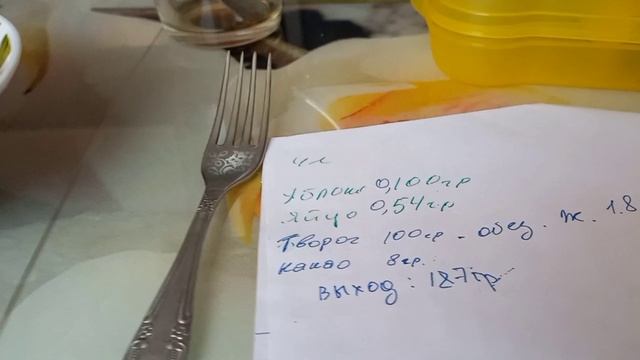 яблоки 0,100гр
яйцо 0,54гр
Творог 100гр - обез. ж. 1.8
какао 8гр.
выход: 187гр